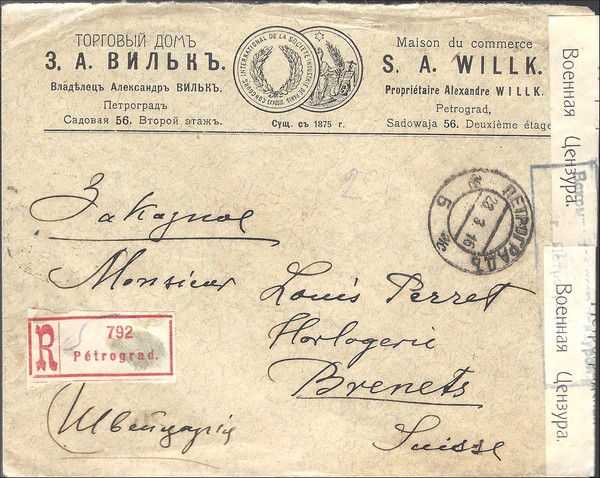 ТОРГОВЫЙ ДОМЪ
З. А. ВИЛЬКЪ.
Владѣлецъ Александръ ВИЛЬКЪ.
Петроградъ
Садовая 56. Второй этажъ.
CONCOURS INTERNATIONAL DE LA SOCIÉTÉ
Сущ. съ 1875 г.
Maison du commerce
S. A. WILLK.
Propriétaire Alexandre WILLK.
Petrograd,
Sadowaja 56. Deuxième étage
Военная Цензура.
Военная Цензура.
2
ПЕТРОГРАДЪ
28 3 16
5
Заказное
Monsieur Louis Perret
Horlogerie
Brenets
Suisse
R
792
Pétrograd.
Швейцарія